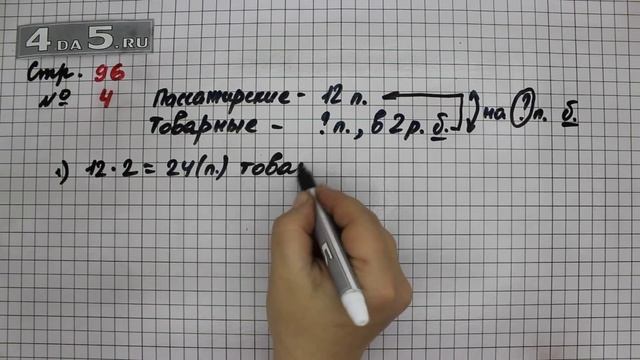 4DA5.RU
Стр. 96
№ 4
Пассажирские - 12 п.
Товарные - ? п., в 2 р. б. на ? п. б.
1) 12 · 2 = 24 (п.) това